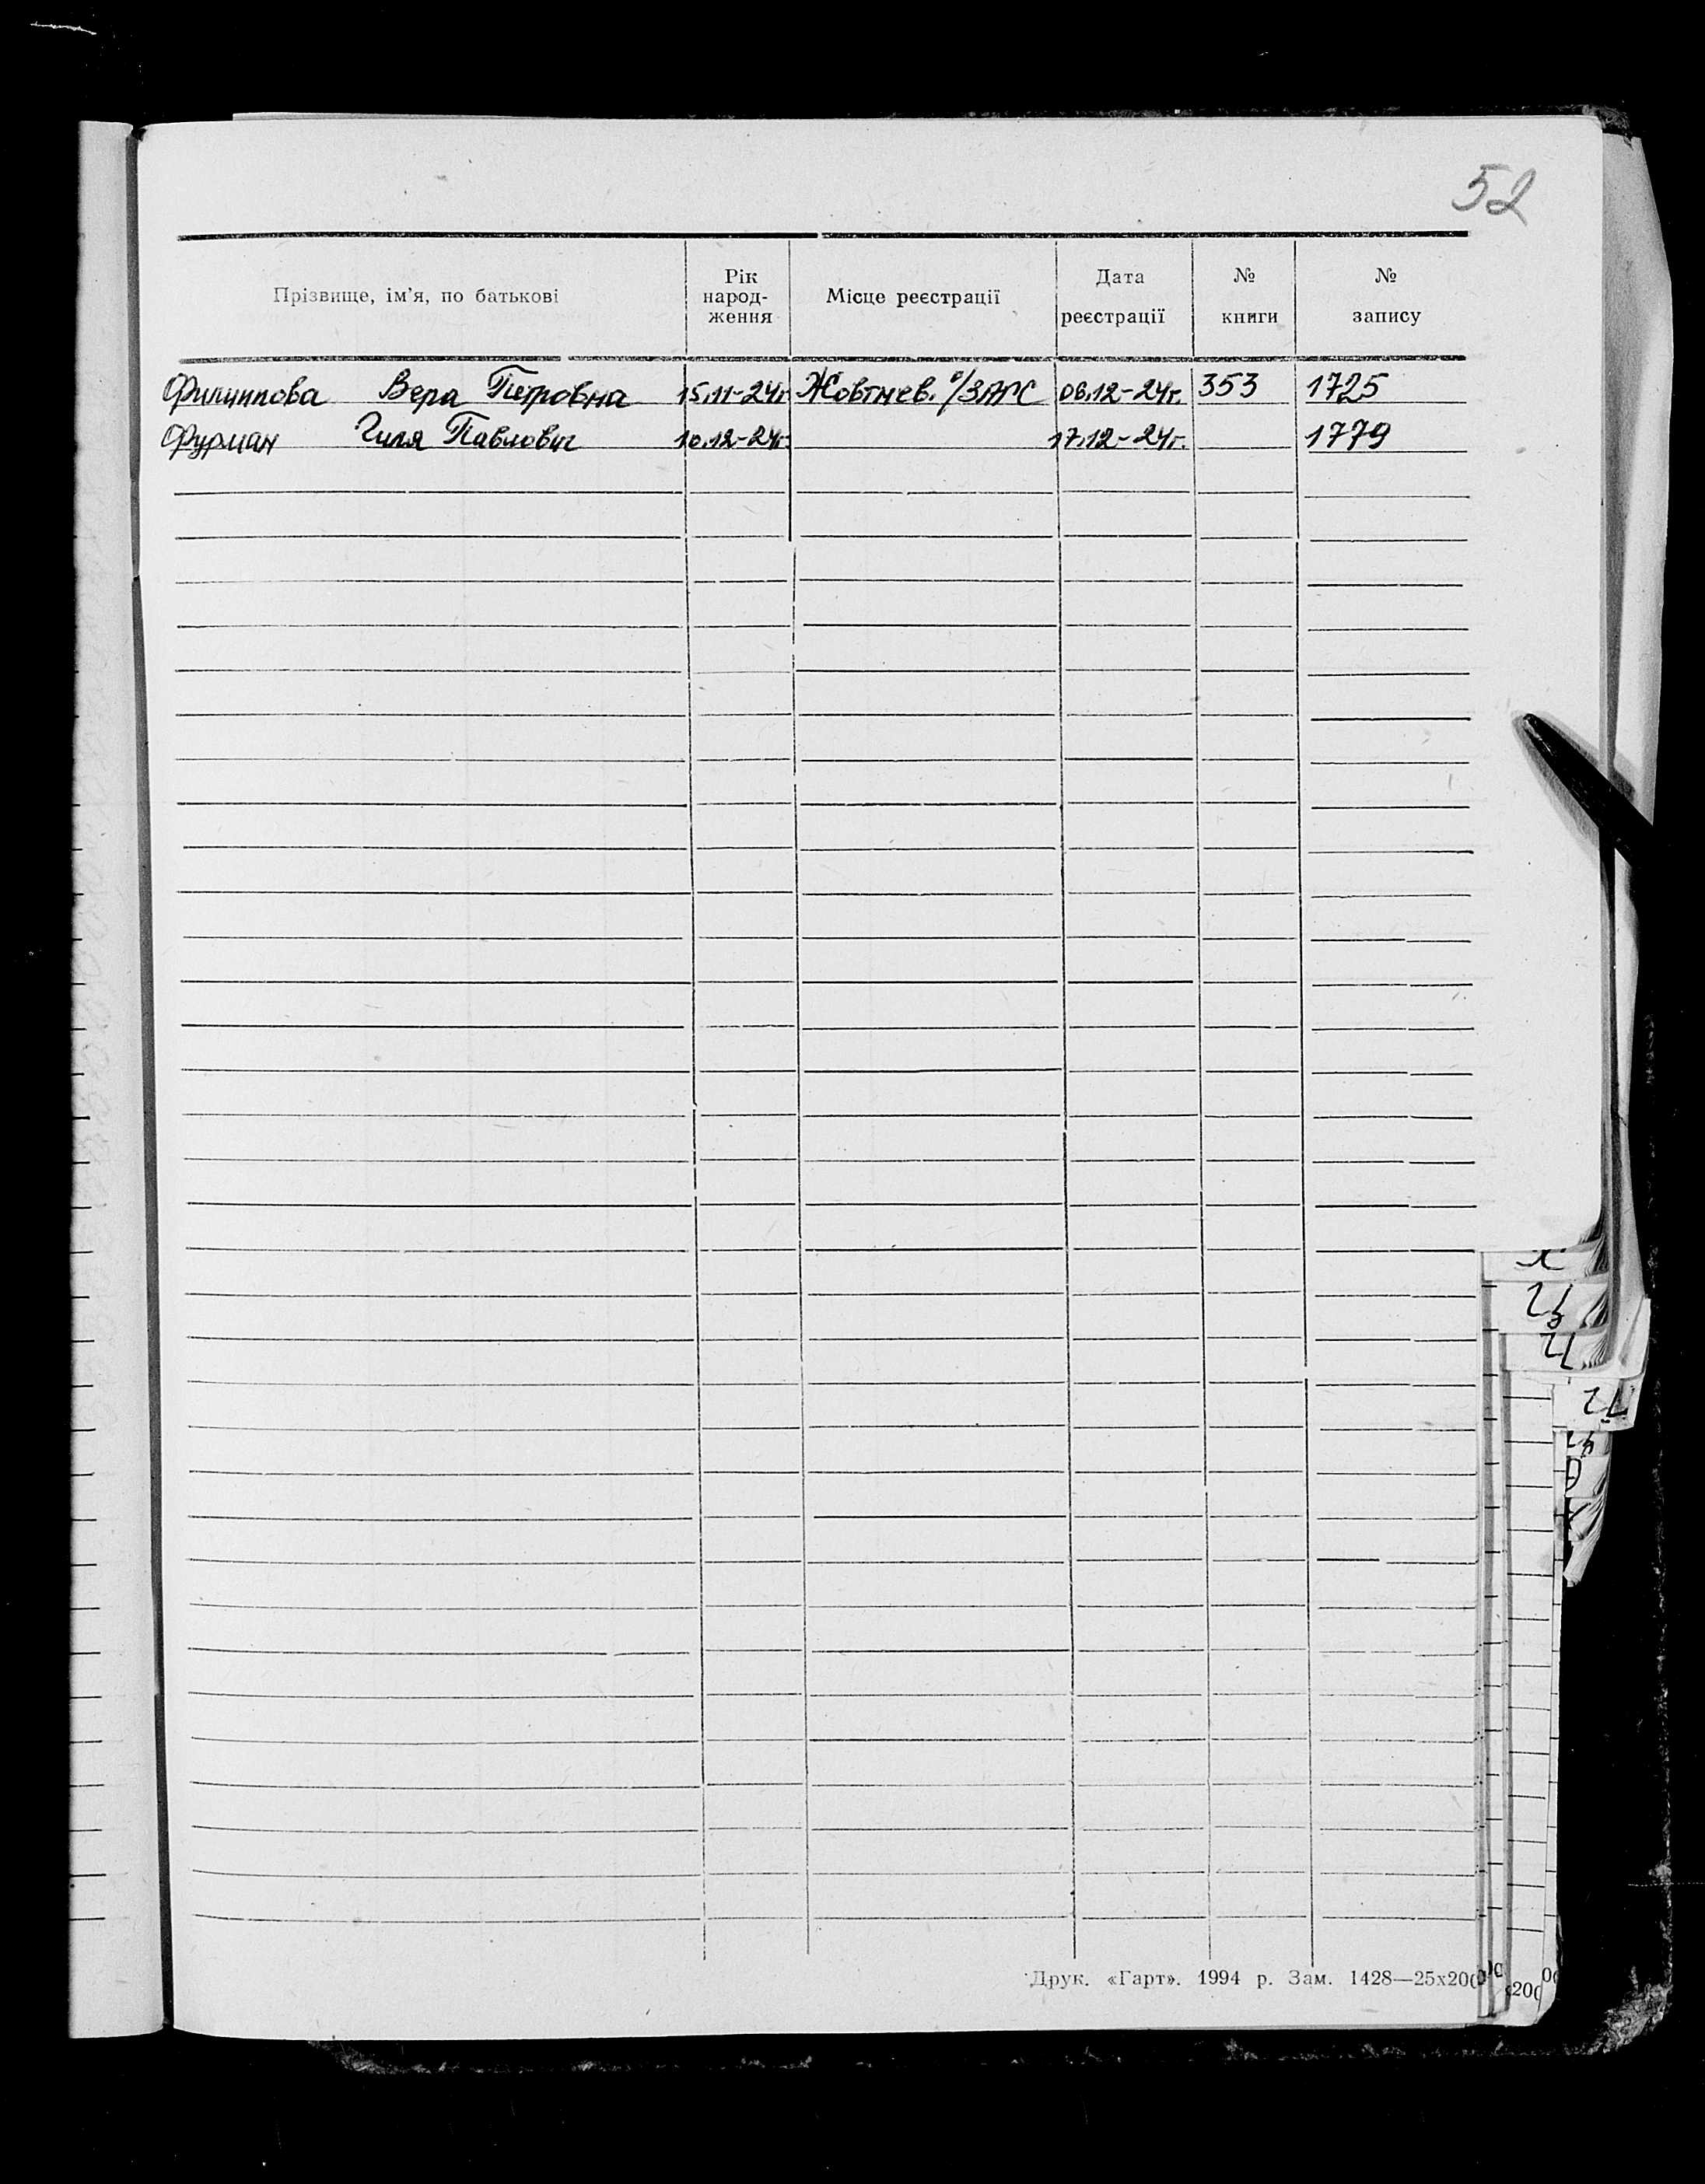 52
Прізвище, ім’я, по батькові
Рік
народ-
ження
Місце реєстрації
Дата
реєстрації
№
книги
№
запису
Филиппова Вера Петровна 15.11-24г. Жовтнев. в/ЗАГС 06.12-24г. 353 1725
Фурман Гиля Павлович 10.12-24г. 17.12-24г. 1779
Друк. «Гарт». 1994 р. Зам. 1428—25х200